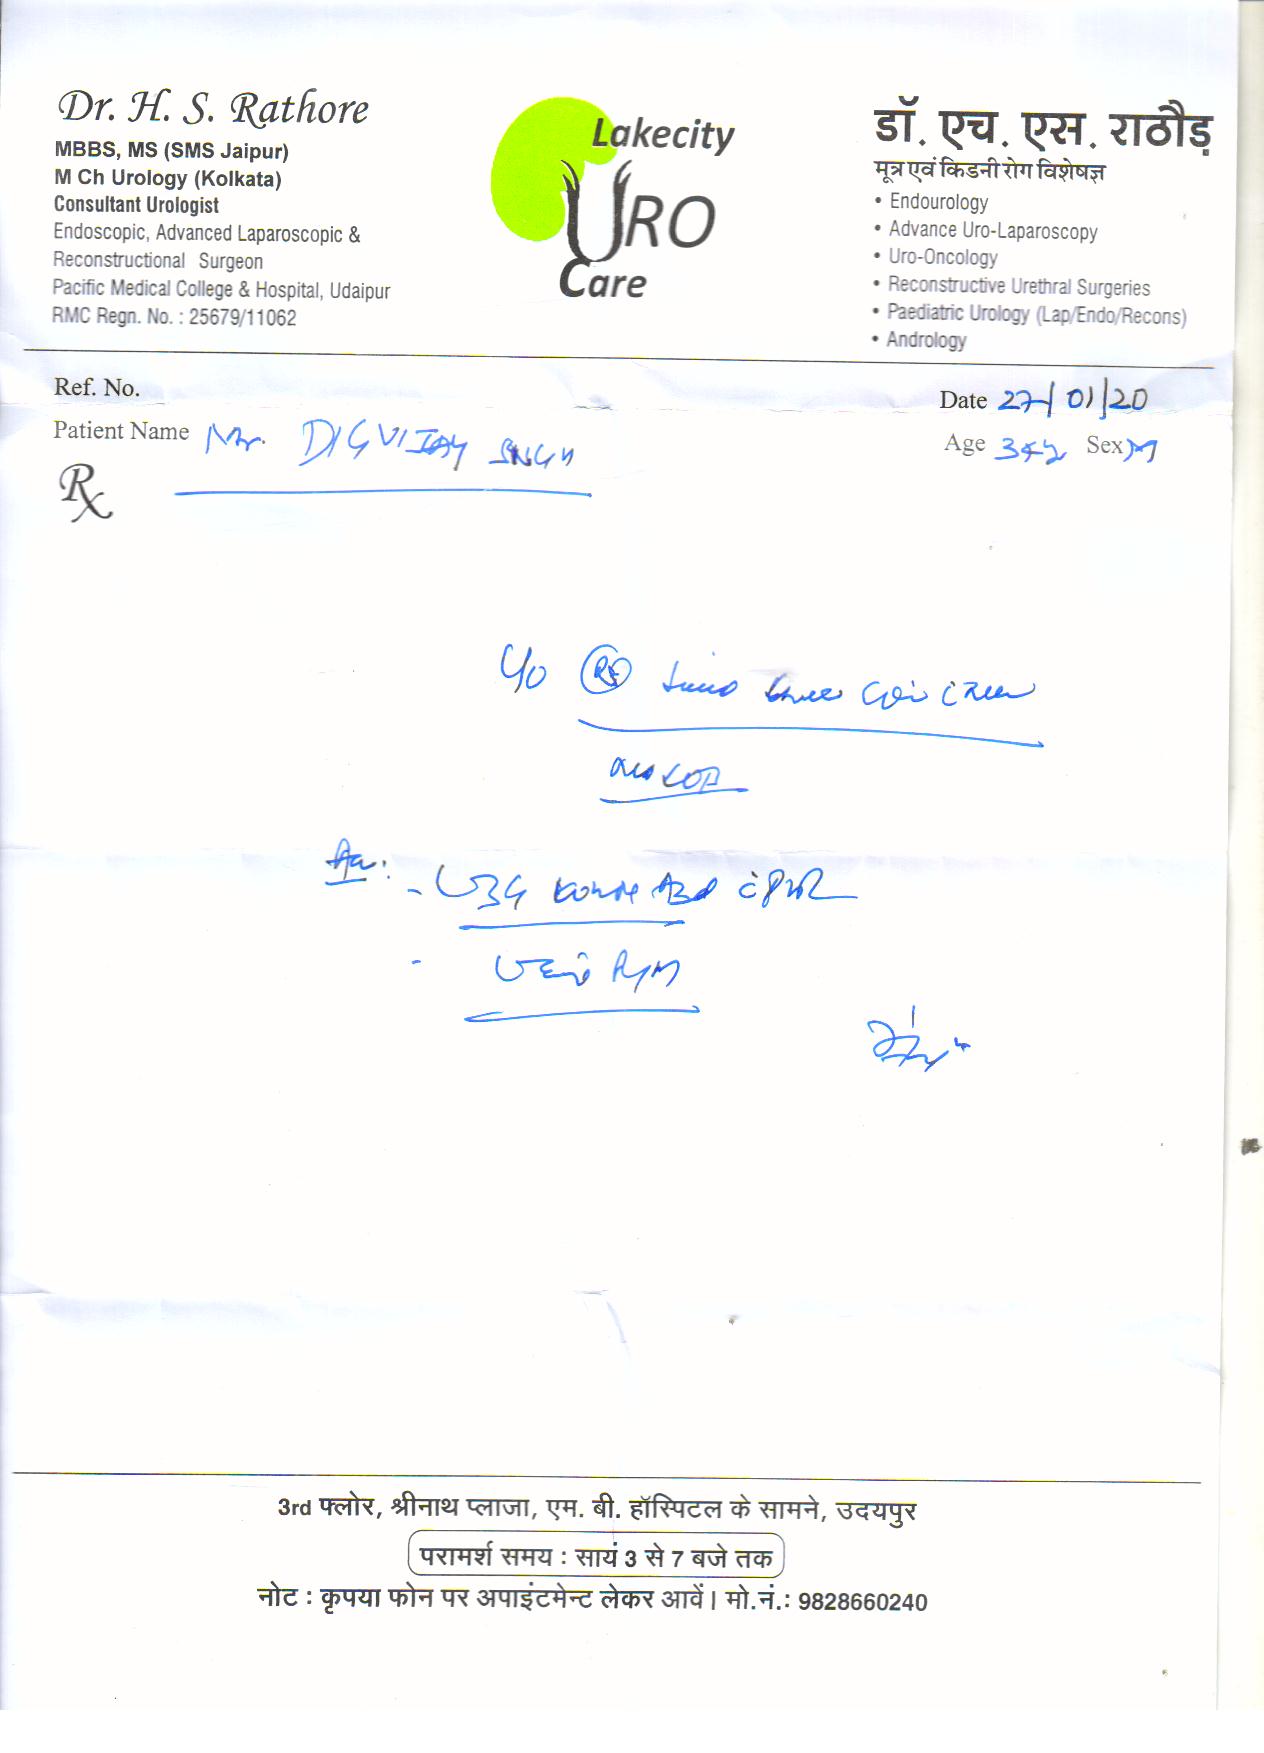 Dr. H. S. Rathore
MBBS, MS (SMS Jaipur)
M Ch Urology (Kolkata)
Consultant Urologist
Endoscopic, Advanced Laparoscopic &
Reconstructional Surgeon
Pacific Medical College & Hospital, Udaipur
RMC Regn. No. : 25679/11062
Lakecity
URO
Care
डॉ. एच. एस. राठौड़
मूत्र एवं किडनी रोग विशेषज्ञ
• Endourology
• Advance Uro-Laparoscopy
• Uro-Oncology
• Reconstructive Urethral Surgeries
• Paediatric Urology (Lap/Endo/Recons)
• Andrology
Ref. No.
Date 27/01/20
Patient Name Mr. DIGVIJAY SINGH
Age Sex M
Rx
C/o
- USG
-
3rd फ्लोर, श्रीनाथ प्लाजा, एम. बी. हॉस्पिटल के सामने, उदयपुर
परामर्श समय : सायं 3 से 7 बजे तक
नोट : कृपया फोन पर अपाइंटमेन्ट लेकर आवें। मो.नं.: 9828660240